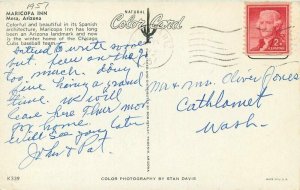 1957
MARICOPA INN
Mesa, Arizona
Colorful and beautiful in its Spanish
architecture, Maricopa Inn has long
been an Arizona landmark and now
is the winter home of the Chicago
Cubs baseball team.
NATURAL
Color Card
2¢
to write sooner
but
too much. doing
fine having a grand
time. will
leave here Thur morn
for home.
Will see you later
John & Pat.
Mr & Mrs. Oliver Jones
Cathlamet
Wash.
K339
COLOR PHOTOGRAPHY BY STAN DAVIS